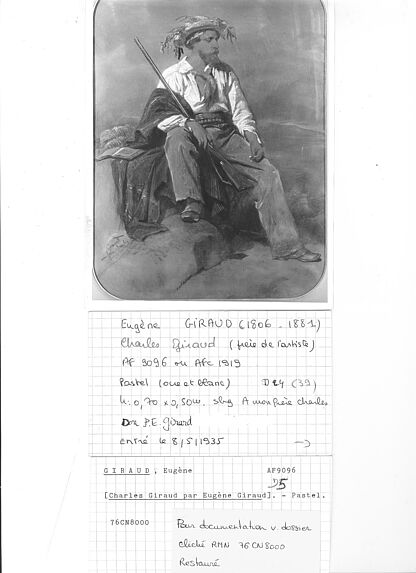 Eugène GIRAUD (1806 - 1881)
Charles Giraud (frère de l'artiste)
AF 9096 ou AFc 1919
Pastel (ocre et blanc) D 24 (39)
h: 0,70 x 0,50 m. sbg A mon frère Charles
Don P.E. Girard
entré le 8/5/1935 →
GIRAUD, Eugène AF9096
D5
[Charles Giraud par Eugène Giraud]. - Pastel.
76CN8000
Pour documentation v. dossier
cliché RMN 76CN8000
Restauré